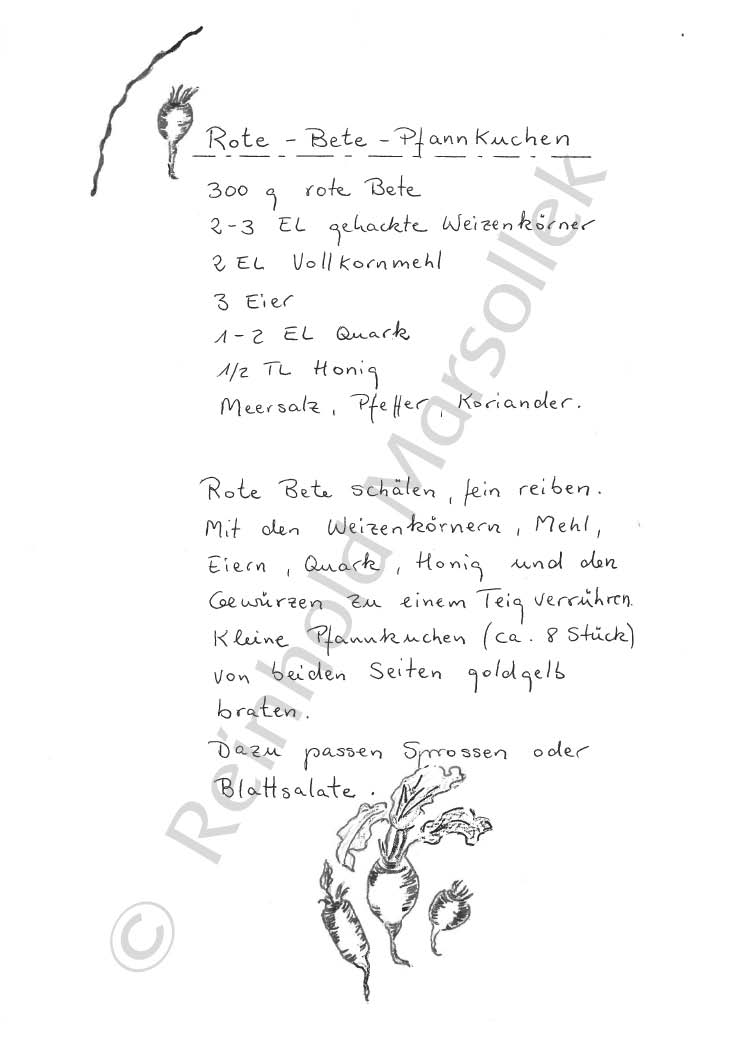 Rote - Bete - Pfannkuchen
300 g rote Bete
2-3 EL gehackte Weizenkörner
2 EL Vollkornmehl
3 Eier
1-2 EL Quark
1/2 TL Honig
Meersalz, Pfeffer, Koriander.
Rote Bete schälen, fein reiben.
Mit den Weizenkörnern, Mehl,
Eiern, Quark, Honig und den
Gewürzen zu einem Teig verrühren.
Kleine Pfannkuchen (ca. 8 Stück)
von beiden Seiten goldgelb
braten.
Dazu passen Sprossen oder
Blattsalate.
© Reinhold Marsollek